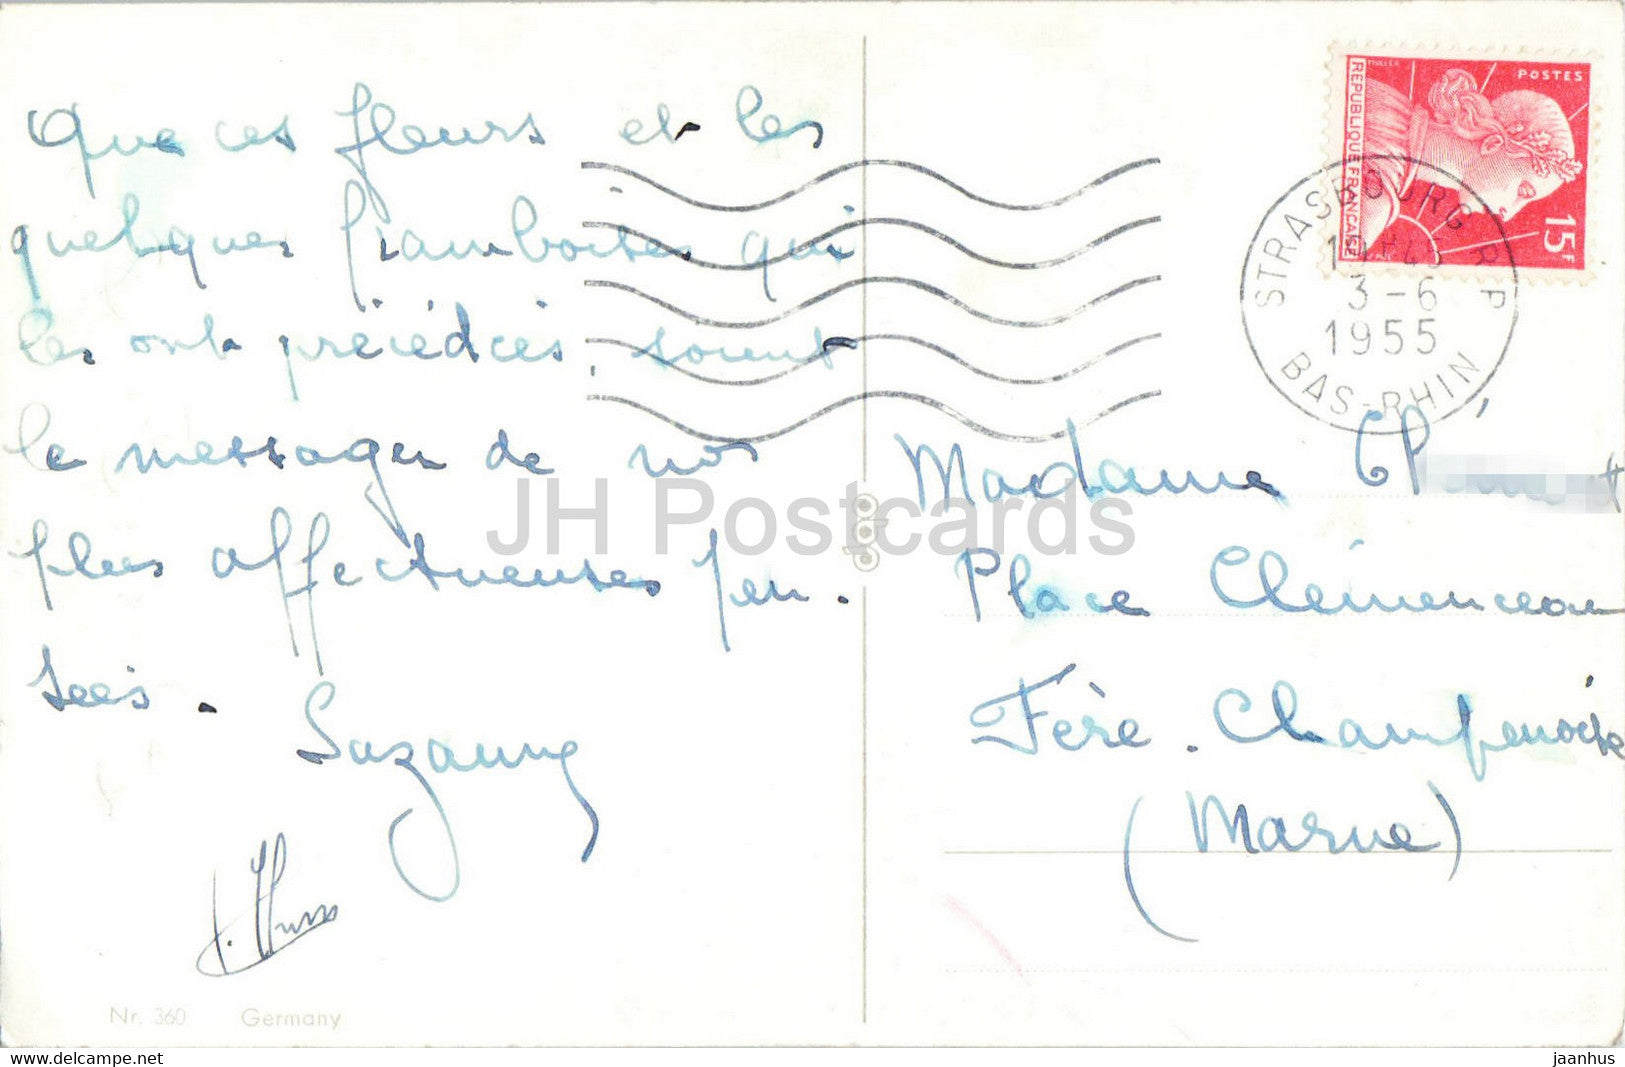 Que ces fleurs et les
quelques framboises qui
les ont précédées, soient
le messager de nos
plus affectueuses pen-
sées.
Suzanne
Nr. 360 Germany
POSTES
MULLER
REPUBLIQUE FRANÇAISE
15F
STRASBOURG R P
3-6
1955
BAS-RHIN
Madame
Place Clémenceau
Fère-Champenoise
(Marne)
JH Postcards
dgo
www.delcampe.net
jaanhus